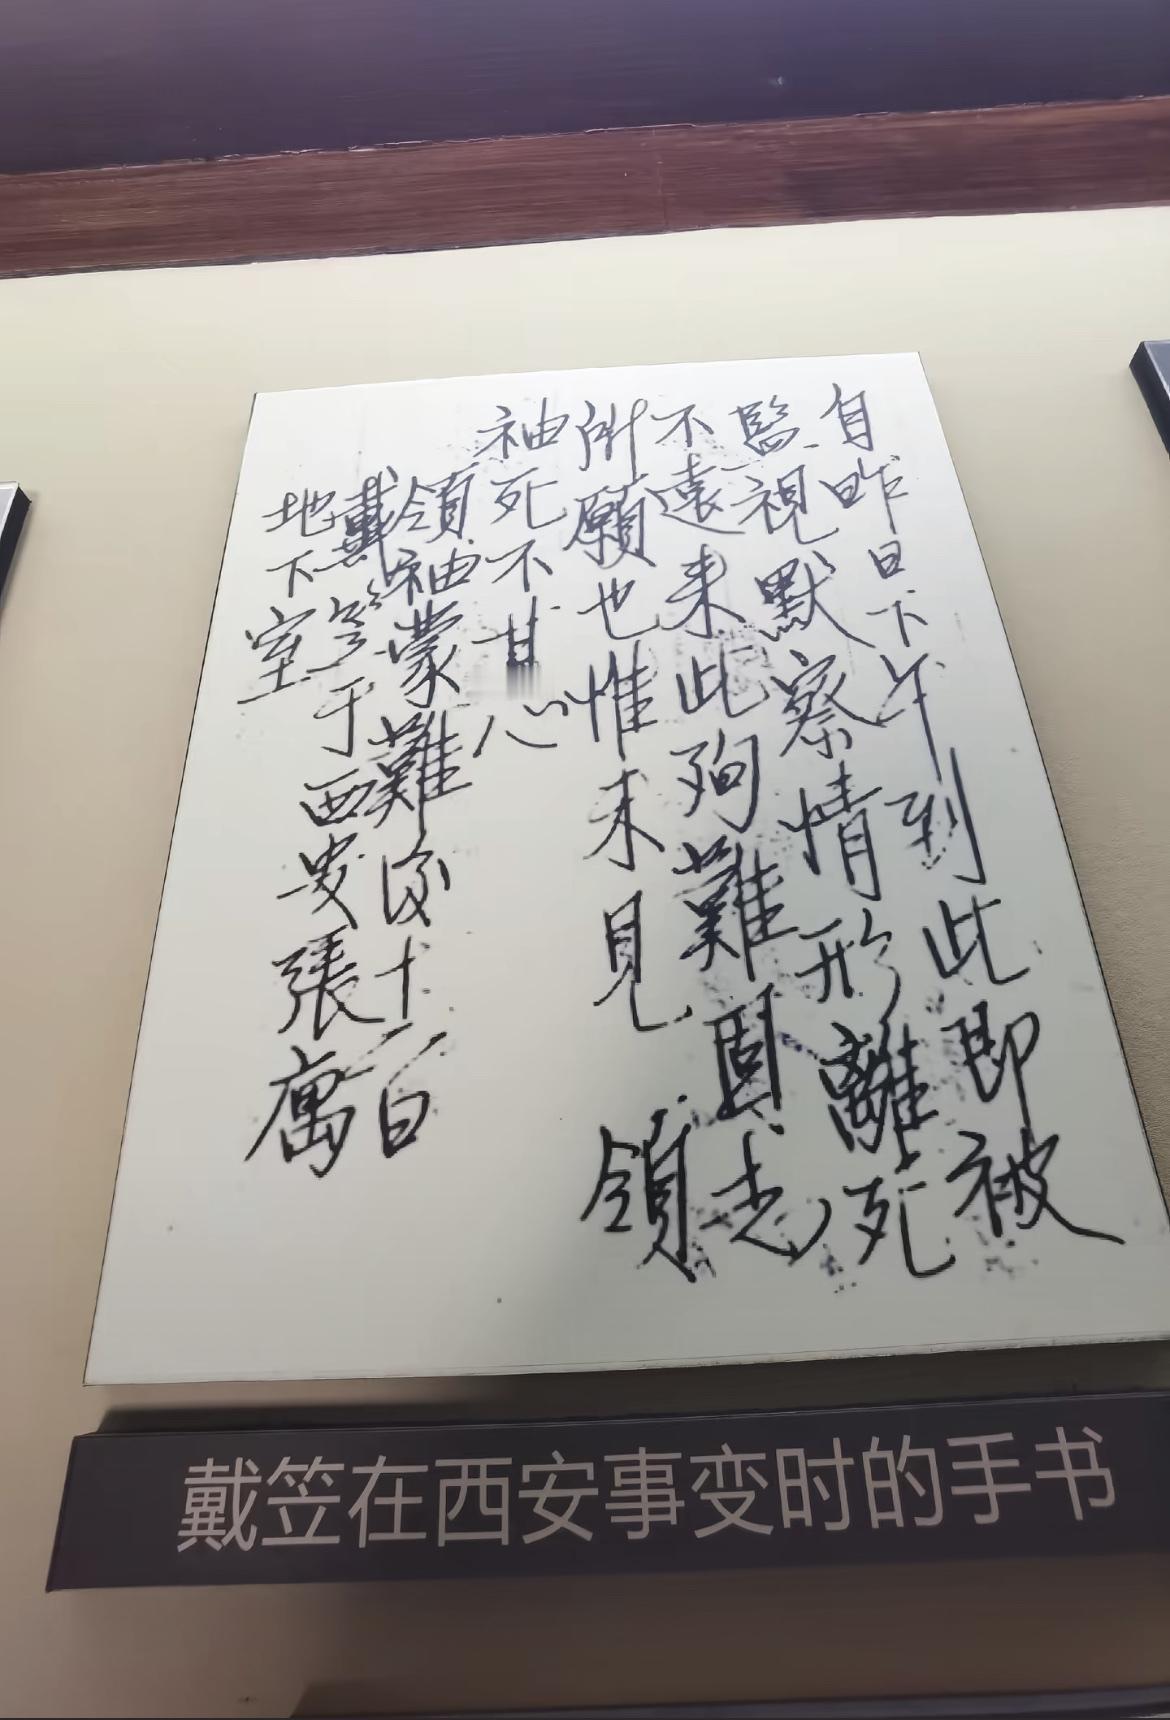 自昨日下午到此即被
監視默察情形離死
不遠来此殉難固志
所願也惟未見領
袖死不甘心
領袖蒙難後十一日
戴笠于西安張寓
地下室
戴笠在西安事变时的手书